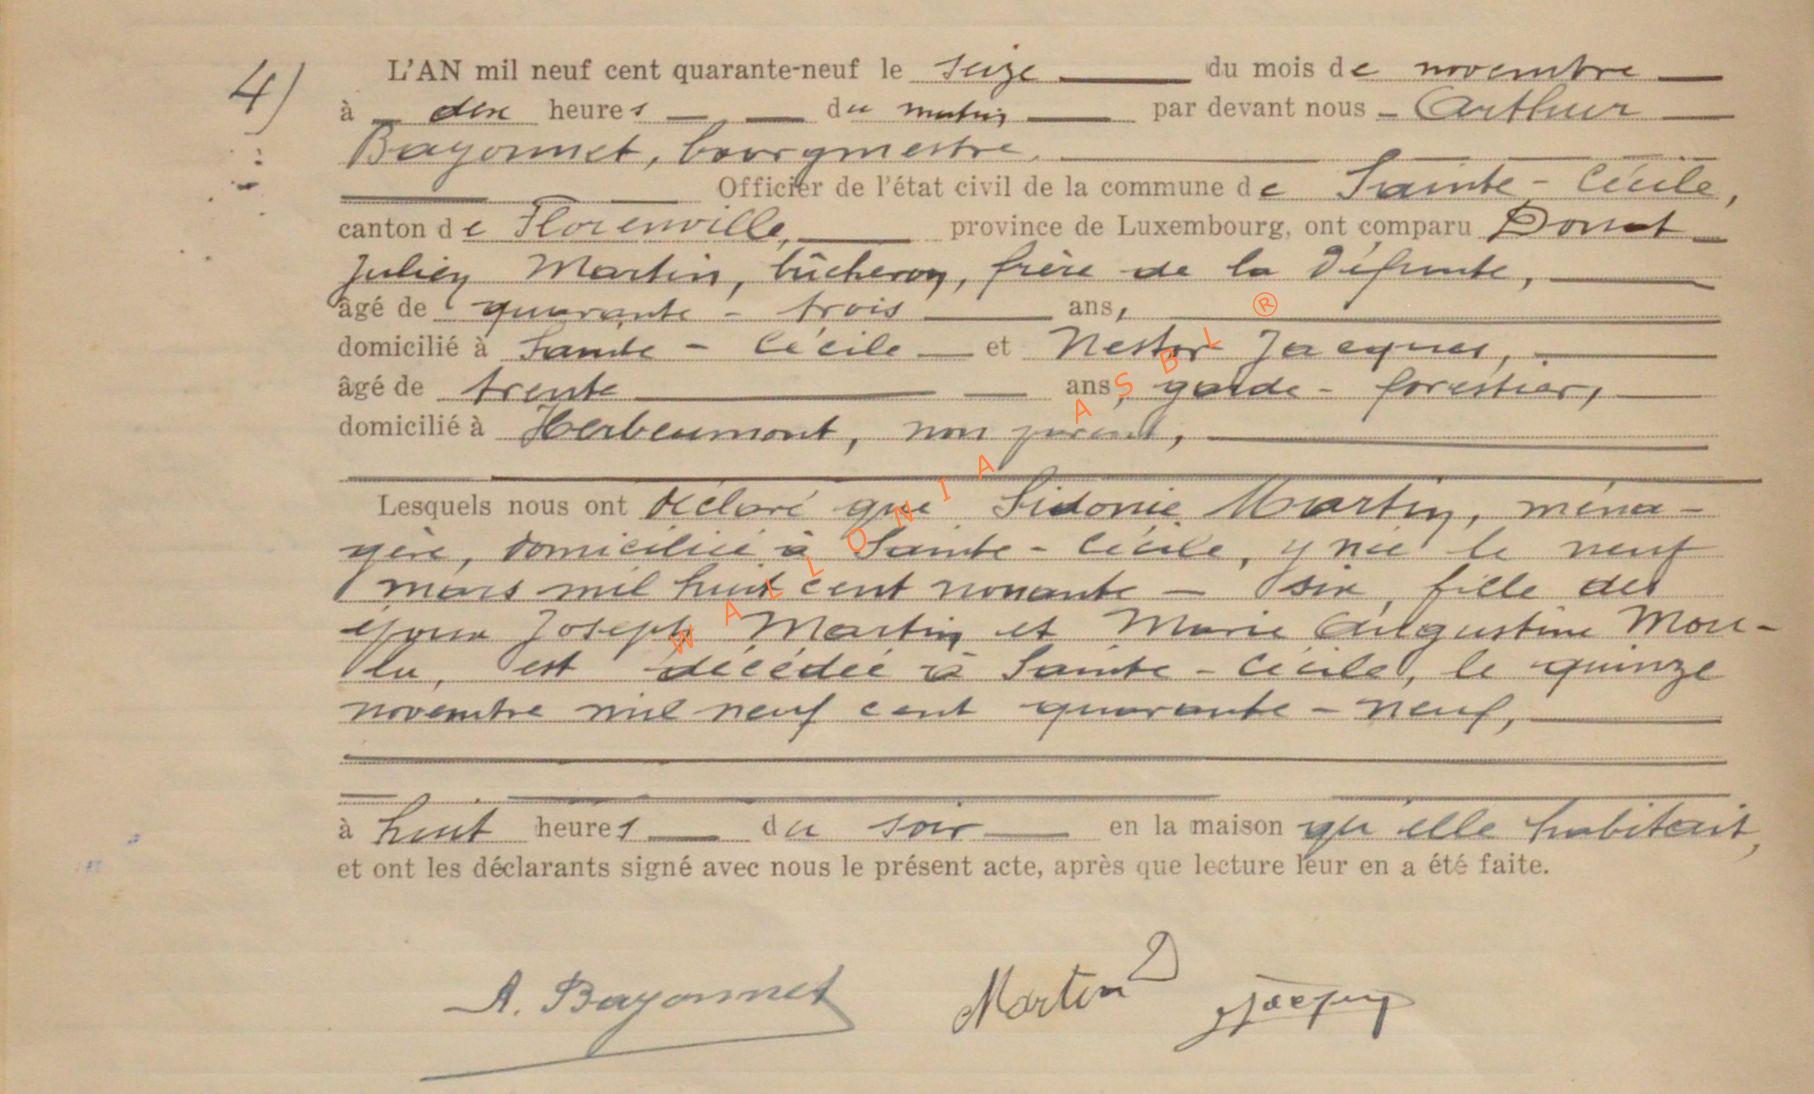 4)
L'AN mil neuf cent quarante-neuf le seize du mois de novembre
à dix heures du matin par devant nous Arthur
Bayonnet, bourgmestre,
Officier de l'état civil de la commune de Sainte-Cécile,
canton de Florenville, province de Luxembourg, ont comparu Donat
Julien Martin, bûcheron, frère de la défunte,
âgé de quarante-trois ans,
domicilié à Sainte-Cécile et Nestor Jacques,
âgé de trente ans, garde-forestier,
domicilié à Herbeumont, non parent,
Lesquels nous ont déclaré que Sidonie Martin, ména-
gère, domiciliée à Sainte-Cécile, y née le neuf
mars mil huit cent nonante-six, fille des
époux Joseph Martin et Marie Augustine Mou-
lu, est décédée à Sainte-Cécile, le quinze
novembre mil neuf cent quarante-neuf,
à huit heures du soir en la maison qu'elle habitait,
et ont les déclarants signé avec nous le présent acte, après que lecture leur en a été faite.
A. Bayonnet Martin D Jacques
WALLONIA ASBL ®